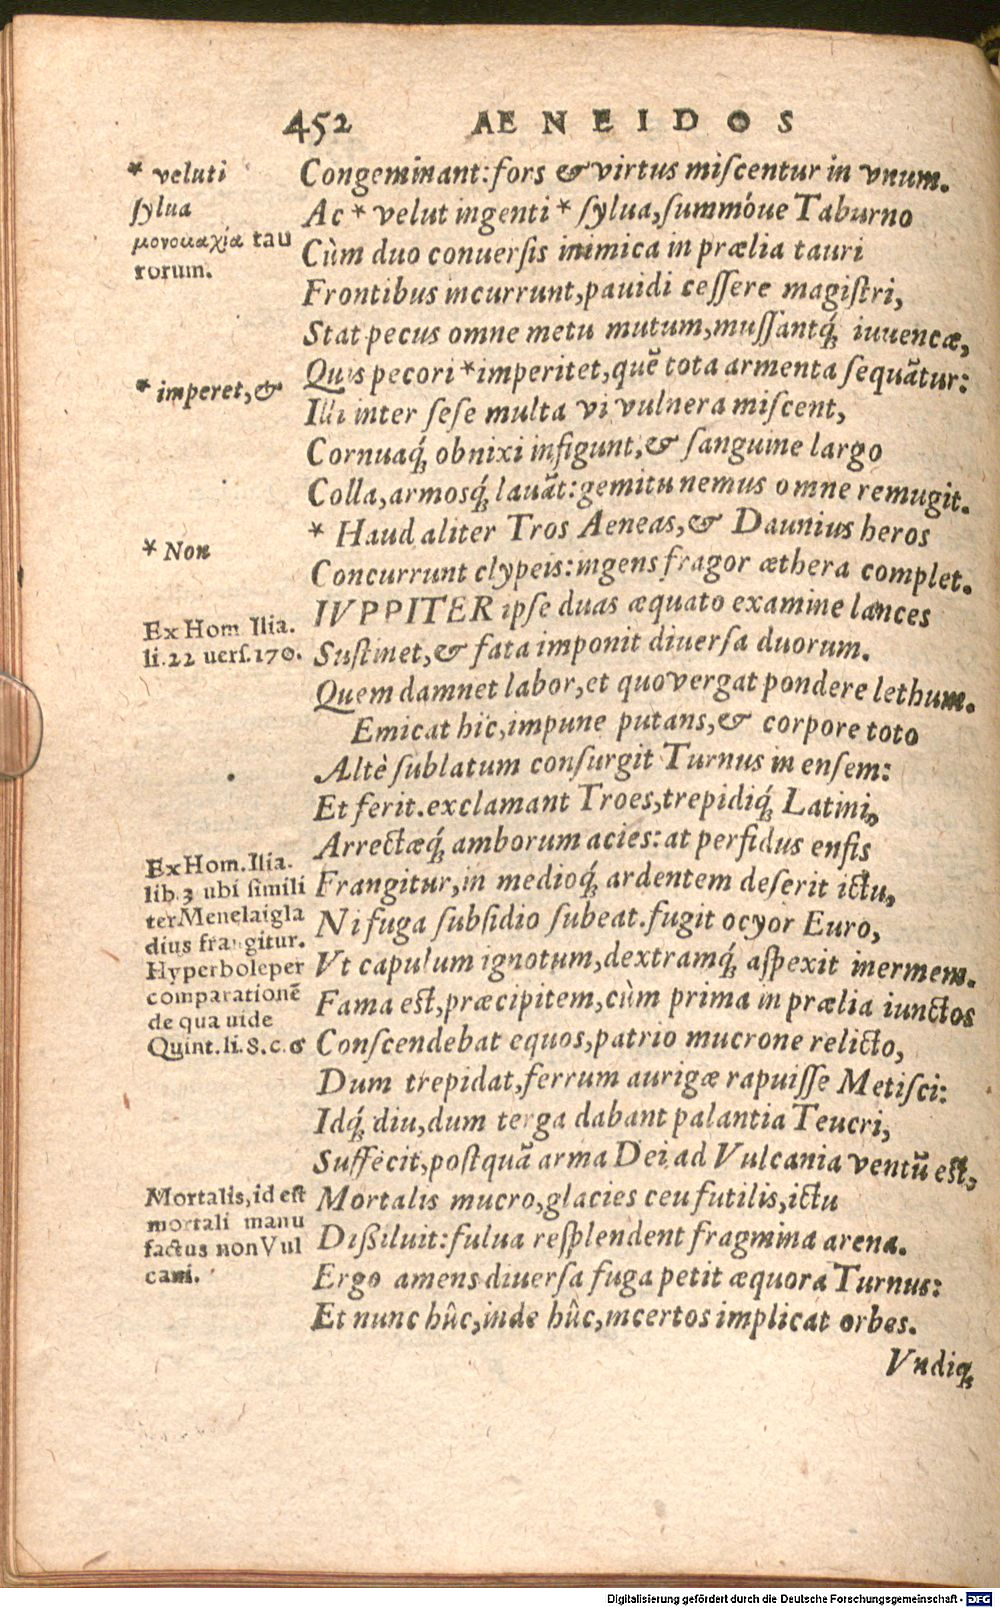 452 AENEIDOS
* veluti
sylua
μονομαχία tau
rorum.
* imperet, &
* Non
Ex Hom Ilia.
li.22 uers.170.
Ex Hom. Ilia.
lib.3 ubi simili
ter Menelai gla
dius frangitur.
Hyperbole per
comparationē
de qua uide
Quint.li.8.c.6
Mortalis, id est
mortali manu
factus non Vul
cani.
Congeminant: fors & virtus miscentur in vnum.
Ac * velut ingenti * sylua, summóue Taburno
Cùm duo conuersis inimica in prælia tauri
Frontibus incurrunt, pauidi cessere magistri,
Stat pecus omne metu mutum, mussantq́; iuuencæ,
Quis pecori * imperitet, quē tota armenta sequātur:
Illi inter sese multa vi vulnera miscent,
Cornuaq́; obnixi infigunt, & sanguine largo
Colla, armosq́; lauāt: gemitu nemus omne remugit.
* Haud aliter Tros Aeneas, & Daunius heros
Concurrunt clypeis: ingens fragor æthera complet.
IVPPITER ipse duas æquato examine lances
Sustinet, & fata imponit diuersa duorum.
Quem damnet labor, et quo vergat pondere lethum.
Emicat hîc, impune putans, & corpore toto
Altè sublatum consurgit Turnus in ensem:
Et ferit. exclamant Troes, trepidiq́; Latini,
Arrectæq́; amborum acies: at perfidus ensis
Frangitur, in medioq́; ardentem deserit ictu,
Ni fuga subsidio subeat. fugit ocyor Euro,
Vt capulum ignotum, dextramq́; aspexit inermem.
Fama est, præcipitem, cùm prima in prælia iunctos
Conscendebat equos, patrio mucrone relicto,
Dum trepidat, ferrum aurigæ rapuisse Metisci:
Idq́; diu, dum terga dabant palantia Teucri,
Suffecit, postquā arma Dei ad Vulcania ventū est,
Mortalis mucro, glacies ceu futilis, ictu
Dißiluit: fulua resplendent fragmina arena.
Ergo amens diuersa fuga petit æquora Turnus:
Et nunc hûc, inde hûc, incertos implicat orbes.
Vndiq;
Digitalisierung gefördert durch die Deutsche Forschungsgemeinschaft - DFG